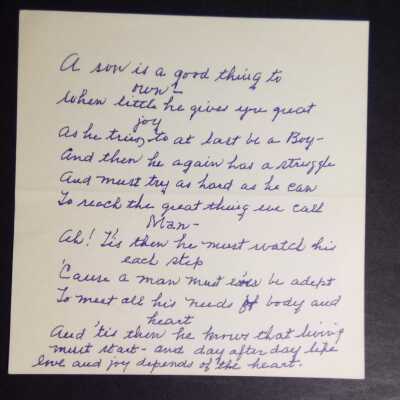 A son is a good thing to
own -
When little he gives you great
joy
As he tries to at last be a Boy -
And then he again has a struggle
And must try as hard as he can
To reach the great thing we call
Man -
Ah! 'Tis then he must watch his
each step
'Cause a man must e'er be adept
To meet all his needs of body and
heart
And 'tis then he knows that living
must start - and day after day life
love and joy depends of the heart.